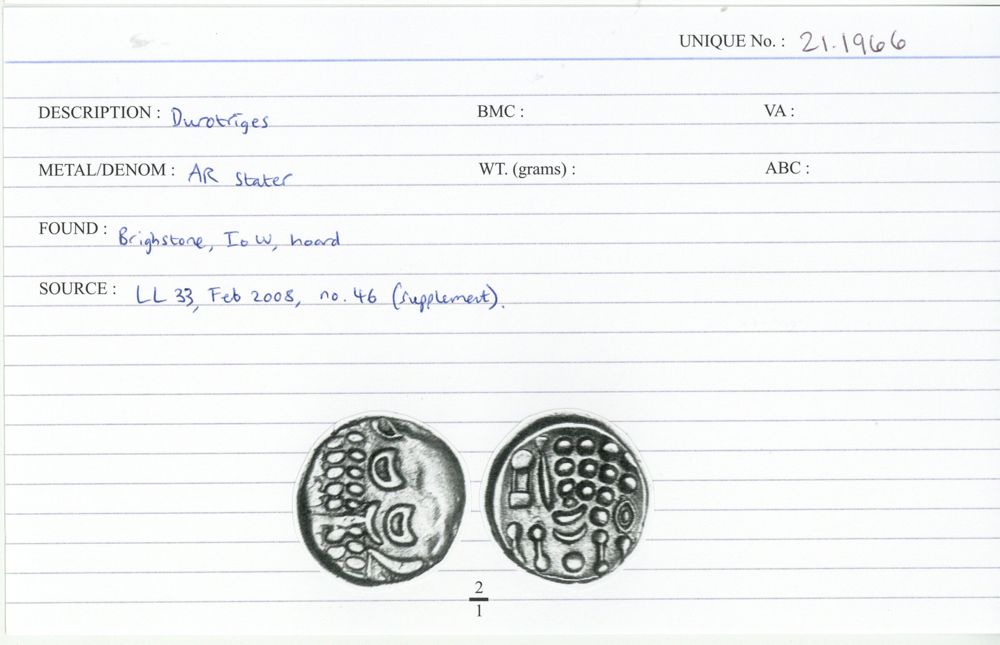 UNIQUE No. : 21.1966
DESCRIPTION : Durotriges BMC : VA :
METAL/DENOM : AR Stater WT. (grams) : ABC :
FOUND : Brighstone, IoW, hoard
SOURCE : LL 33, Feb 2008, no. 46 (supplement).
2
1